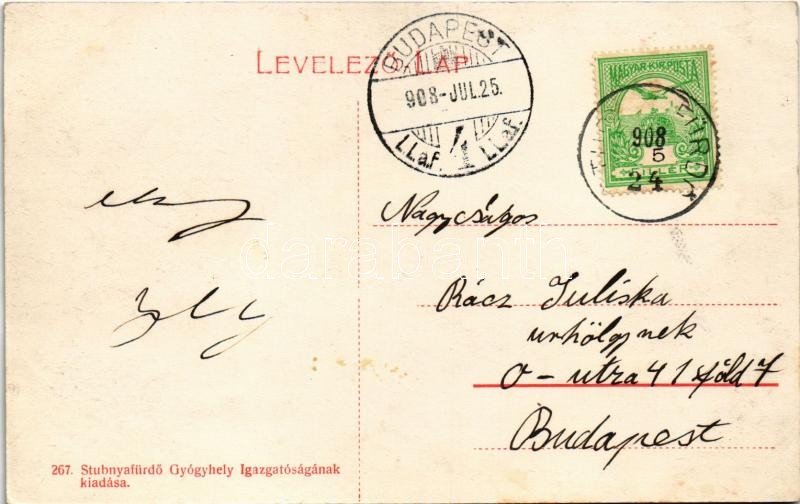 LEVELEZŐ LAP
BUDAPEST
908-JUL.25.
I.La.f. 4 I.La.f.
MAGYAR·KIR·POSTA
FÜRDŐ
908
5
24
Nagyságos
Rácz Juliska
urhölgynek
O-utza 41 föld 7
Budapest
darabanth
267. Stubnyafürdő Gyógyhely Igazgatóságának
kiadása.